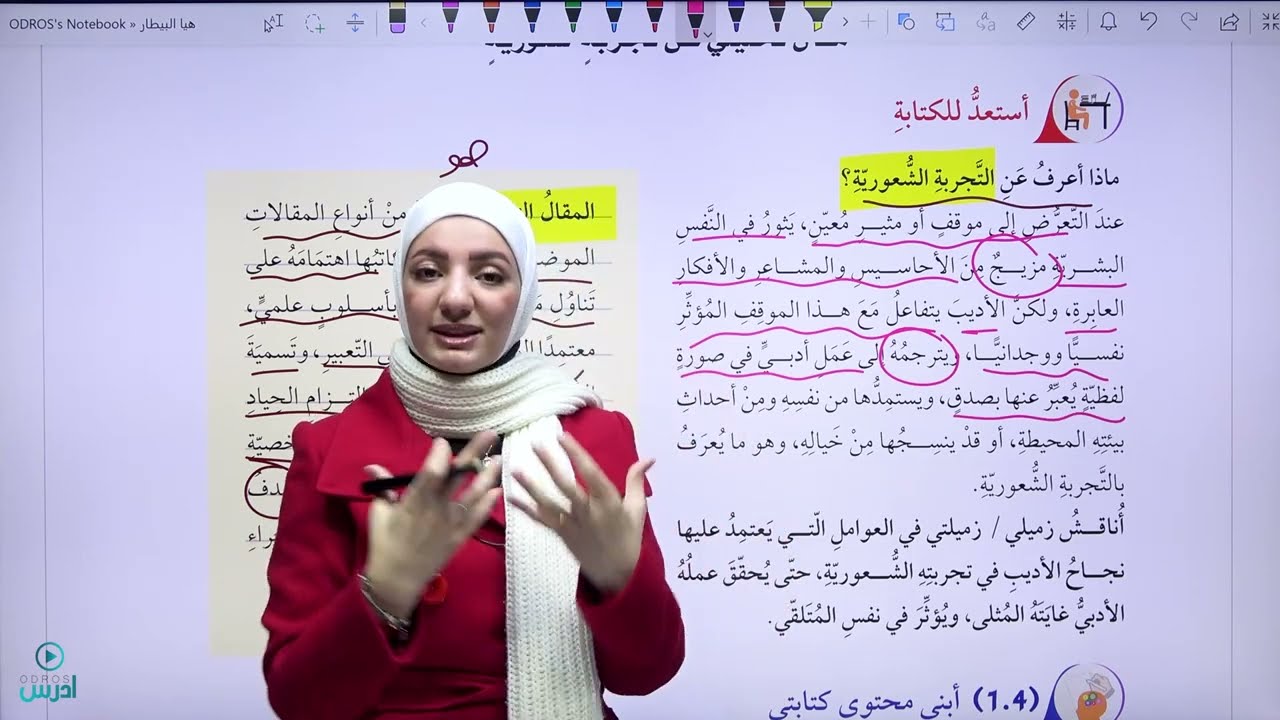 ODROS's Notebook » هيا البيطار
أستعدُّ للكتابةِ
ماذا أعرفُ عَنِ التَّجربةِ الشُّعوريّةِ؟
عندَ التّعرُّضِ إلى موقفٍ أو مثيرٍ مُعيّنٍ، يَثورُ في النَّفسِ
البشريّةِ مزيجٌ منَ الأحاسيسِ والمشاعرِ والأفكارِ
العابِرةِ، ولكنَّ الأديبَ يتفاعلُ مَعَ هذا الموقفِ المُؤثِّرِ
نفسيًّا ووجدانيًّا، ويترجمُهُ إلى عَمَلٍ أدبيٍّ في صورةٍ
لفظيّةٍ يُعبِّرُ عنها بصدقٍ، ويستمِدُّها من نفسِهِ ومِنْ أحداثِ
بيئتِهِ المحيطةِ، أو قدْ ينسِجُها مِنْ خَيالِهِ، وهو ما يُعرَفُ
بالتَّجربةِ الشُّعوريّةِ.
أُناقشُ زميلي / زميلتي في العواملِ الّتي يَعتمِدُ عليها
نجاحُ الأديبِ في تجربتِهِ الشُّعوريّةِ، حتّى يُحقّقَ عملُهُ
الأدبيُّ غايَتَهُ المُثلى، ويُؤثِّرَ في نفسِ المُتَلقّي.
(1.4) أبني محتوى كتابتي
المقالُ مِنْ أنواعِ المقالاتِ
كاتبُها اهتمامَهُ على
تَناوُلِ بأسلوبٍ علميٍّ،
معتمِدًا التّعبيرِ، وتَسميةَ
التزامِ الحيادِ
ODROS
ادرس